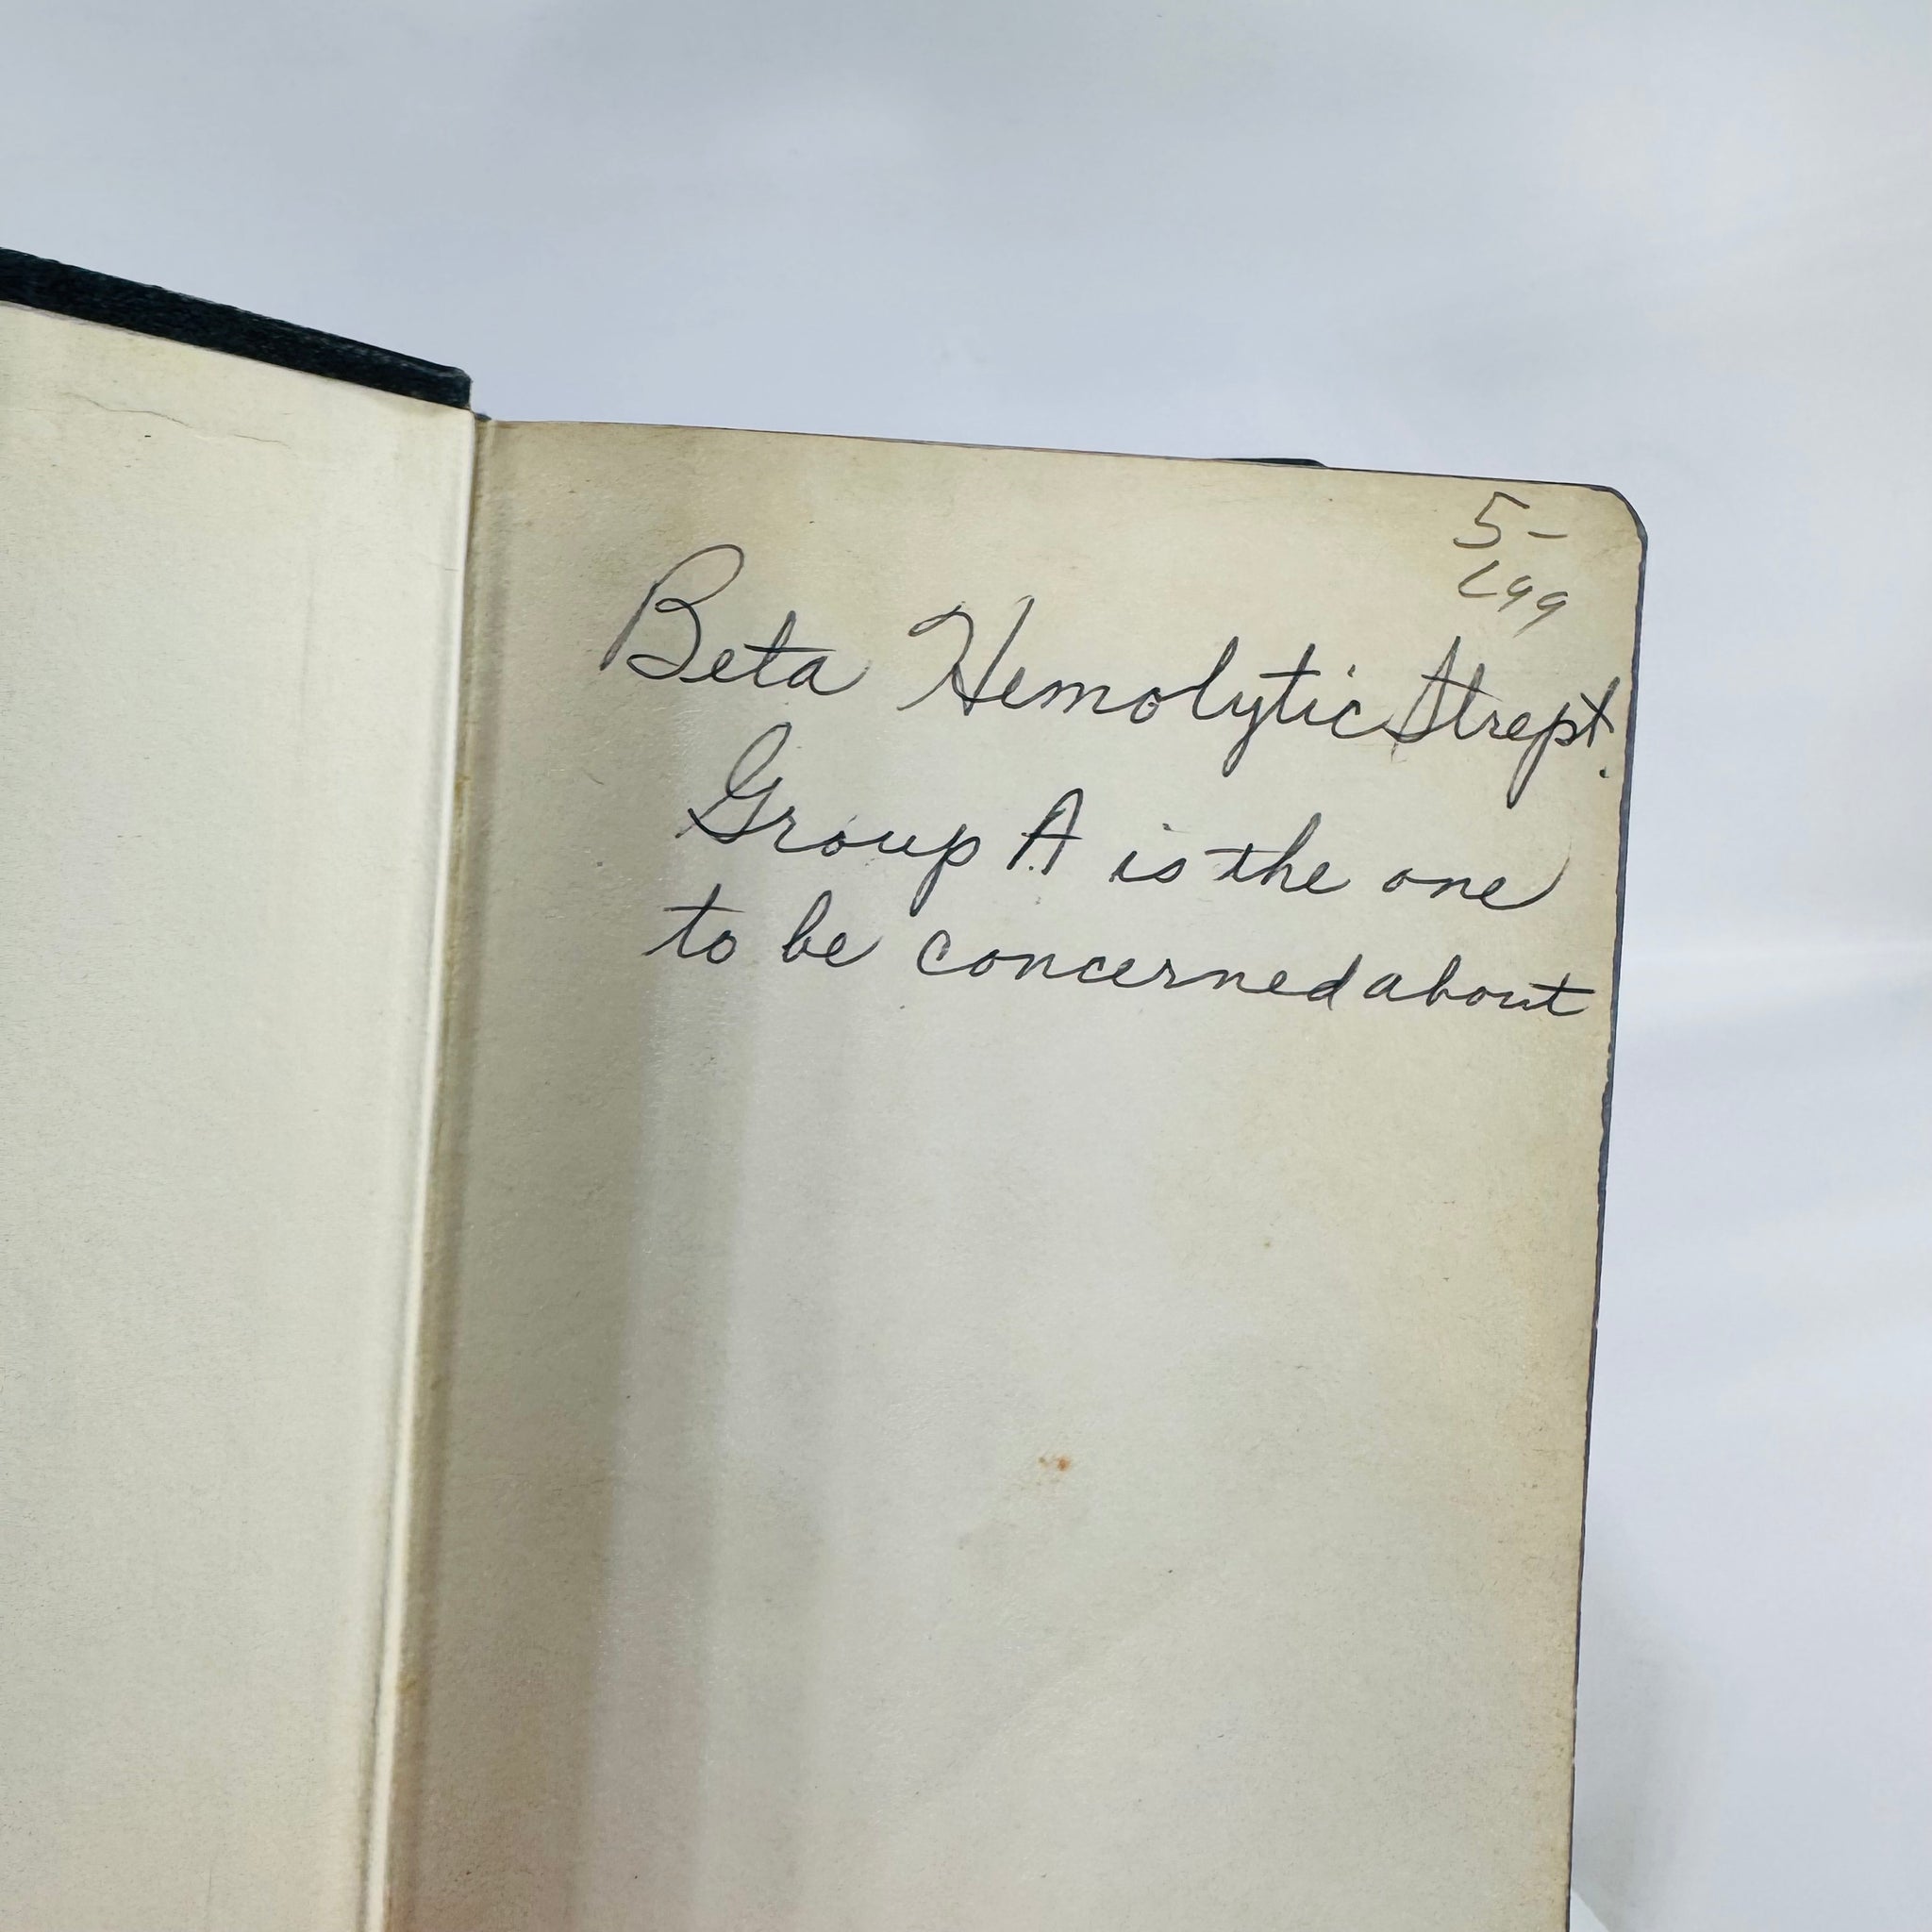 5-
Beta Hemolytic Strept.
Group A is the one
to be concerned about